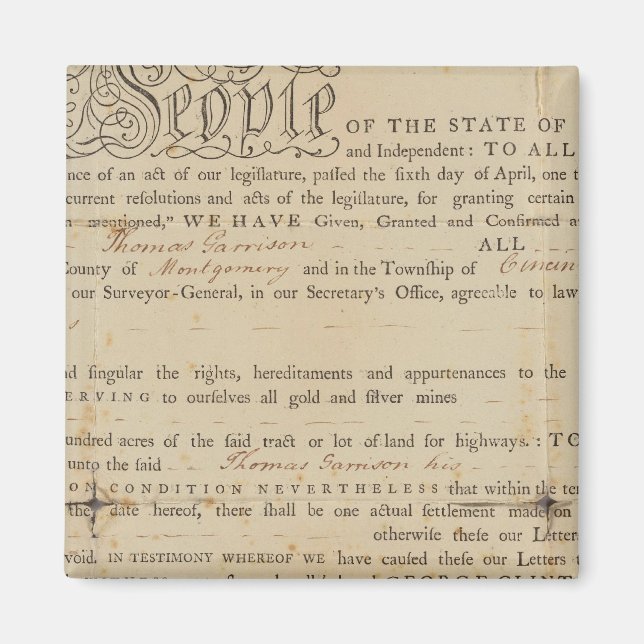 People OF THE STATE OF
and Independent: TO ALL
nce of an act of our legiſlature, paſſed the ſixth day of April, one t
current reſolutions and acts of the legiſlature, for granting certain
n mentioned," WE HAVE Given, Granted and Confirmed a
Thomas Garrison ALL
County of Montgomery and in the Townſhip of Cincin
our Surveyor-General, in our Secretary's Office, agreeable to law
s
nd ſingular the rights, hereditaments and appurtenances to the
ERVING to ourſelves all gold and ſilver mines
undred acres of the ſaid tract or lot of land for highways.: TO
unto the ſaid Thomas Garrison his
ON CONDITION NEVERTHELESS that within the ter
the date hereof, there ſhall be one actual ſettlement made on
otherwiſe theſe our Letters
void. IN TESTIMONY WHEREOF WE have cauſed theſe our Letters t
GEORGE CLINT